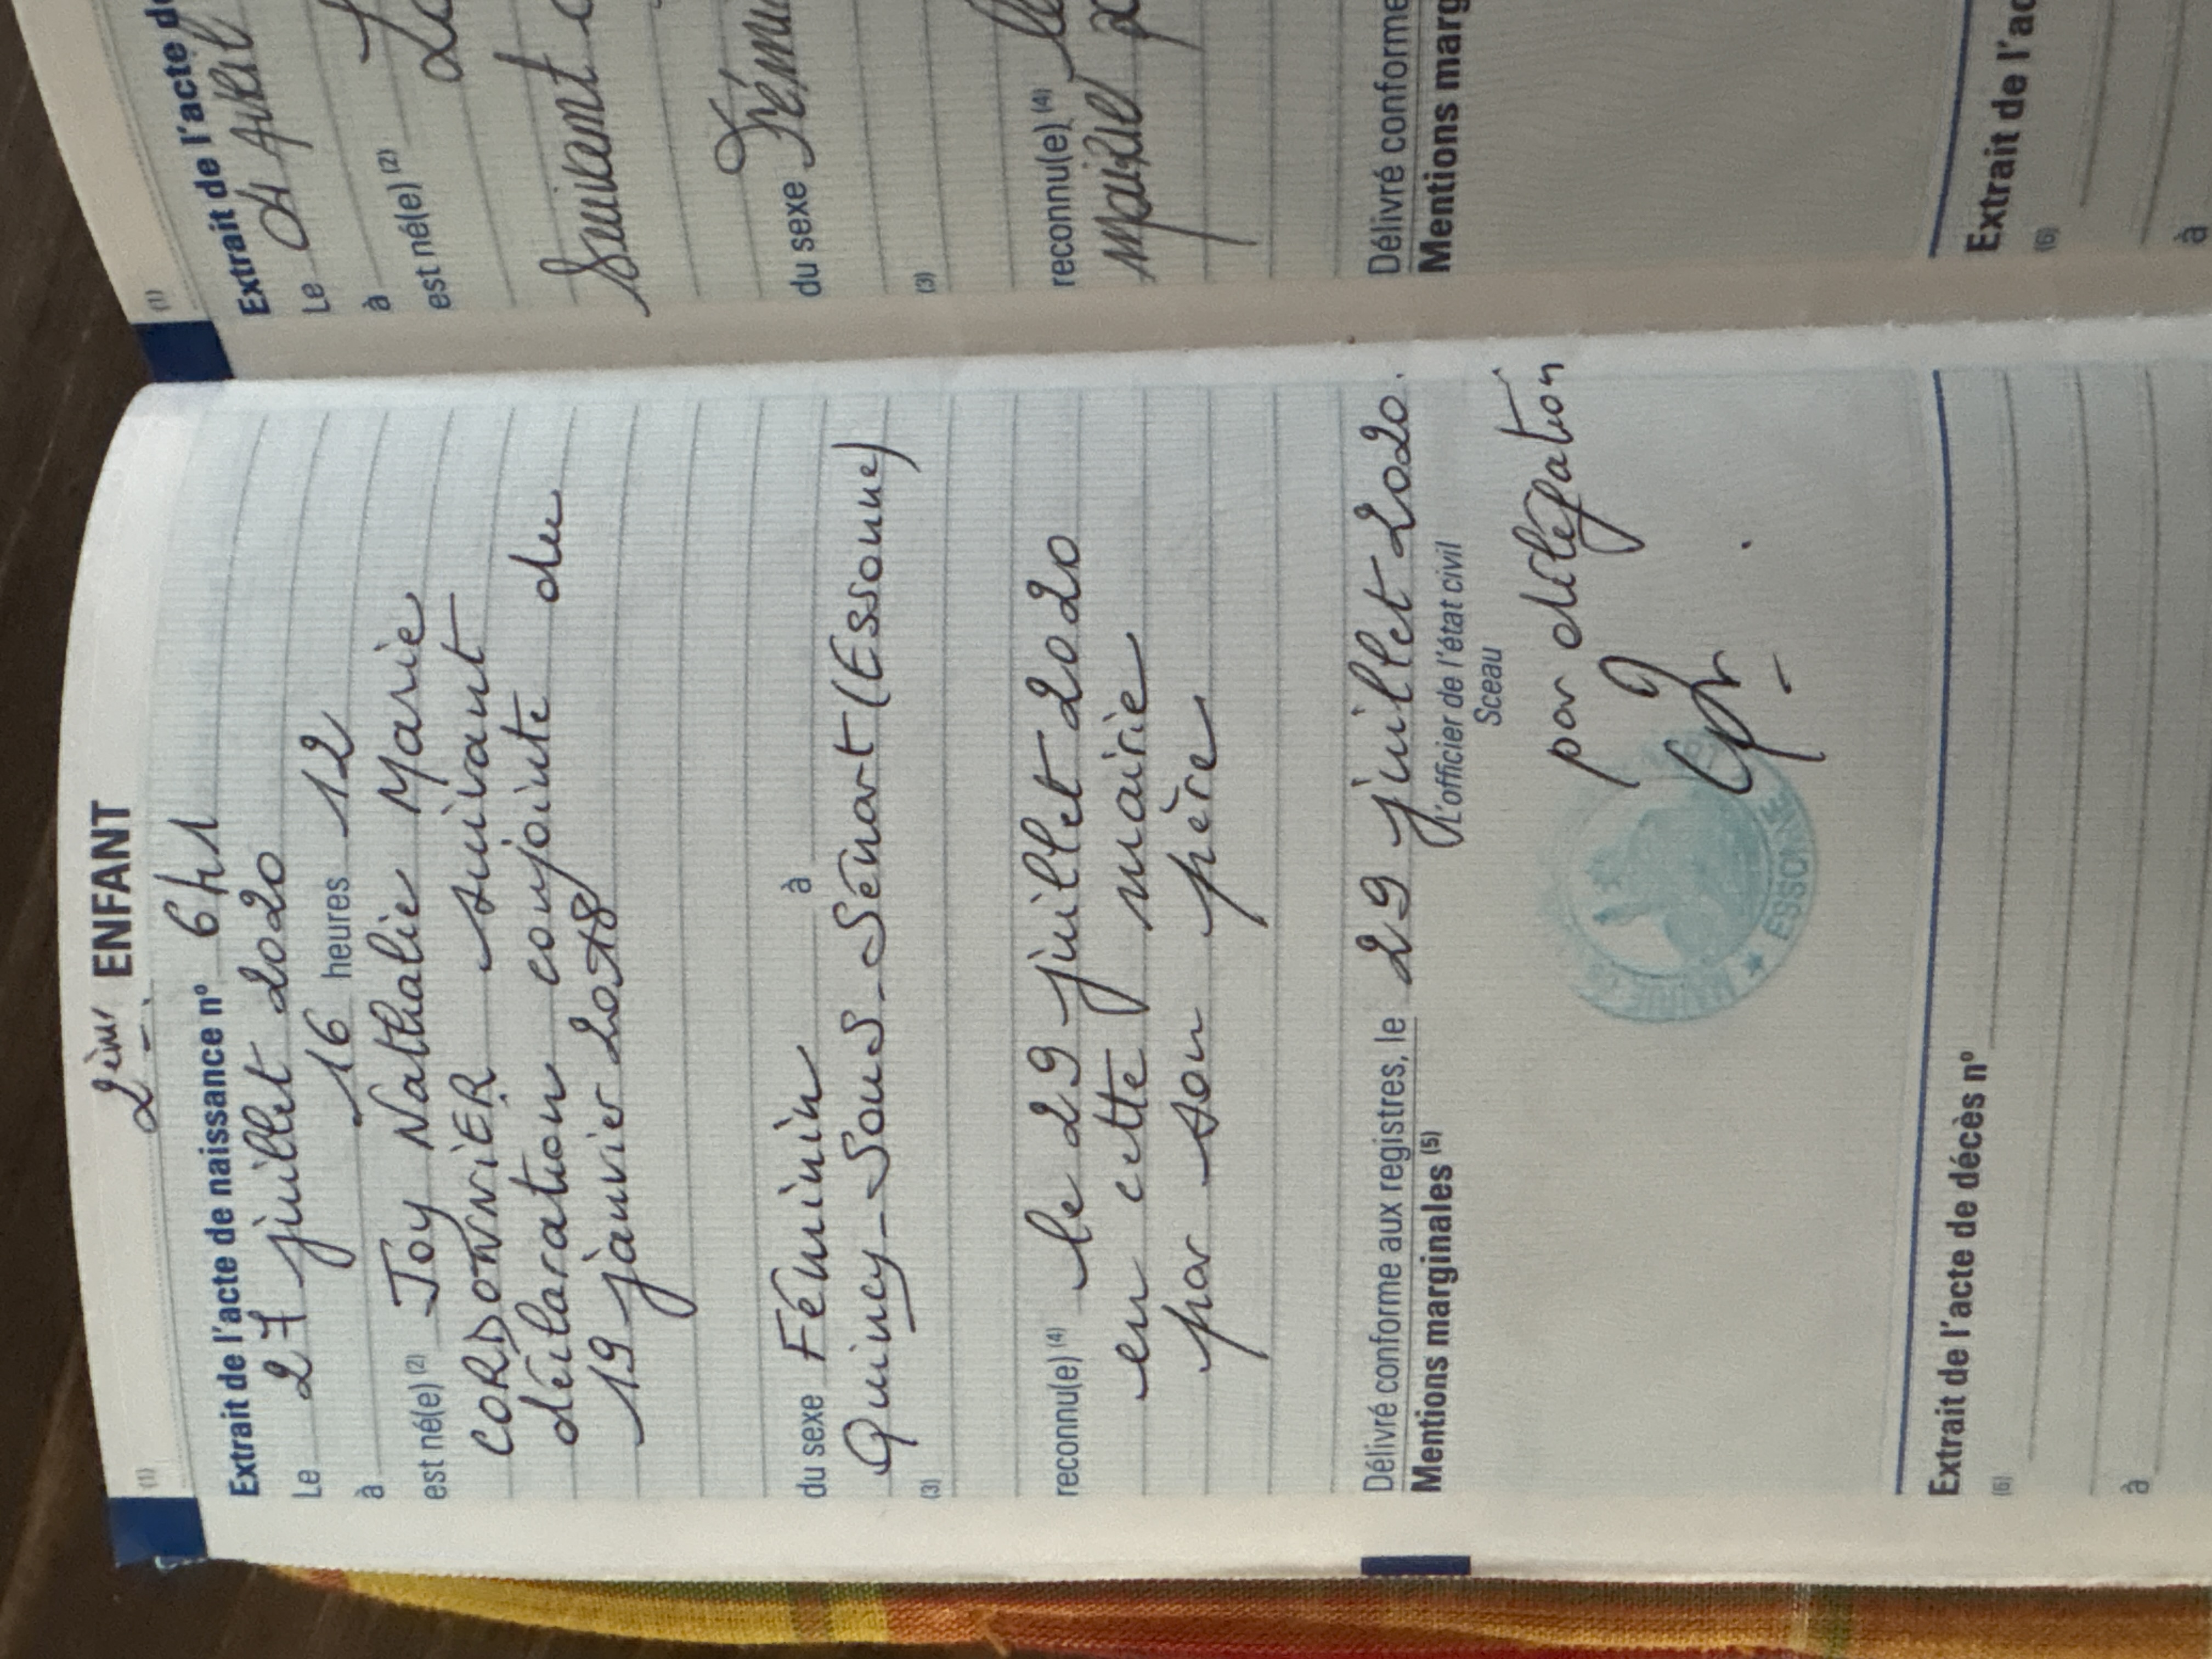 (1)
2ème ENFANT
Extrait de l'acte de naissance nº 641
Le 27 juillet 2020
à 16 heures 12
est né(e) (2) Joy Nathalie Marie
CORDONNIER suivant
déclaration conjointe du
19 janvier 2018
du sexe Féminin à
Quincy-Sous-Sénart (Essonne)
(3)
reconnu(e) (4) le 29 juillet 2020
en cette mairie
par son père
Délivré conforme aux registres, le 29 juillet 2020.
Mentions marginales (5)
L'officier de l'état civil
Sceau
par délégation
MAIRIE
★ ESSONNE
Extrait de l'acte de décès nº
(6)
à
(1)
Extrait de l'acte de
Le 01 Avril
à
est né(e) (2)
Suivant
du sexe Fémi
(3)
reconnu(e) (4)
mairie
Délivré conforme
Mentions marg
Extrait de l'ac
(6)
à